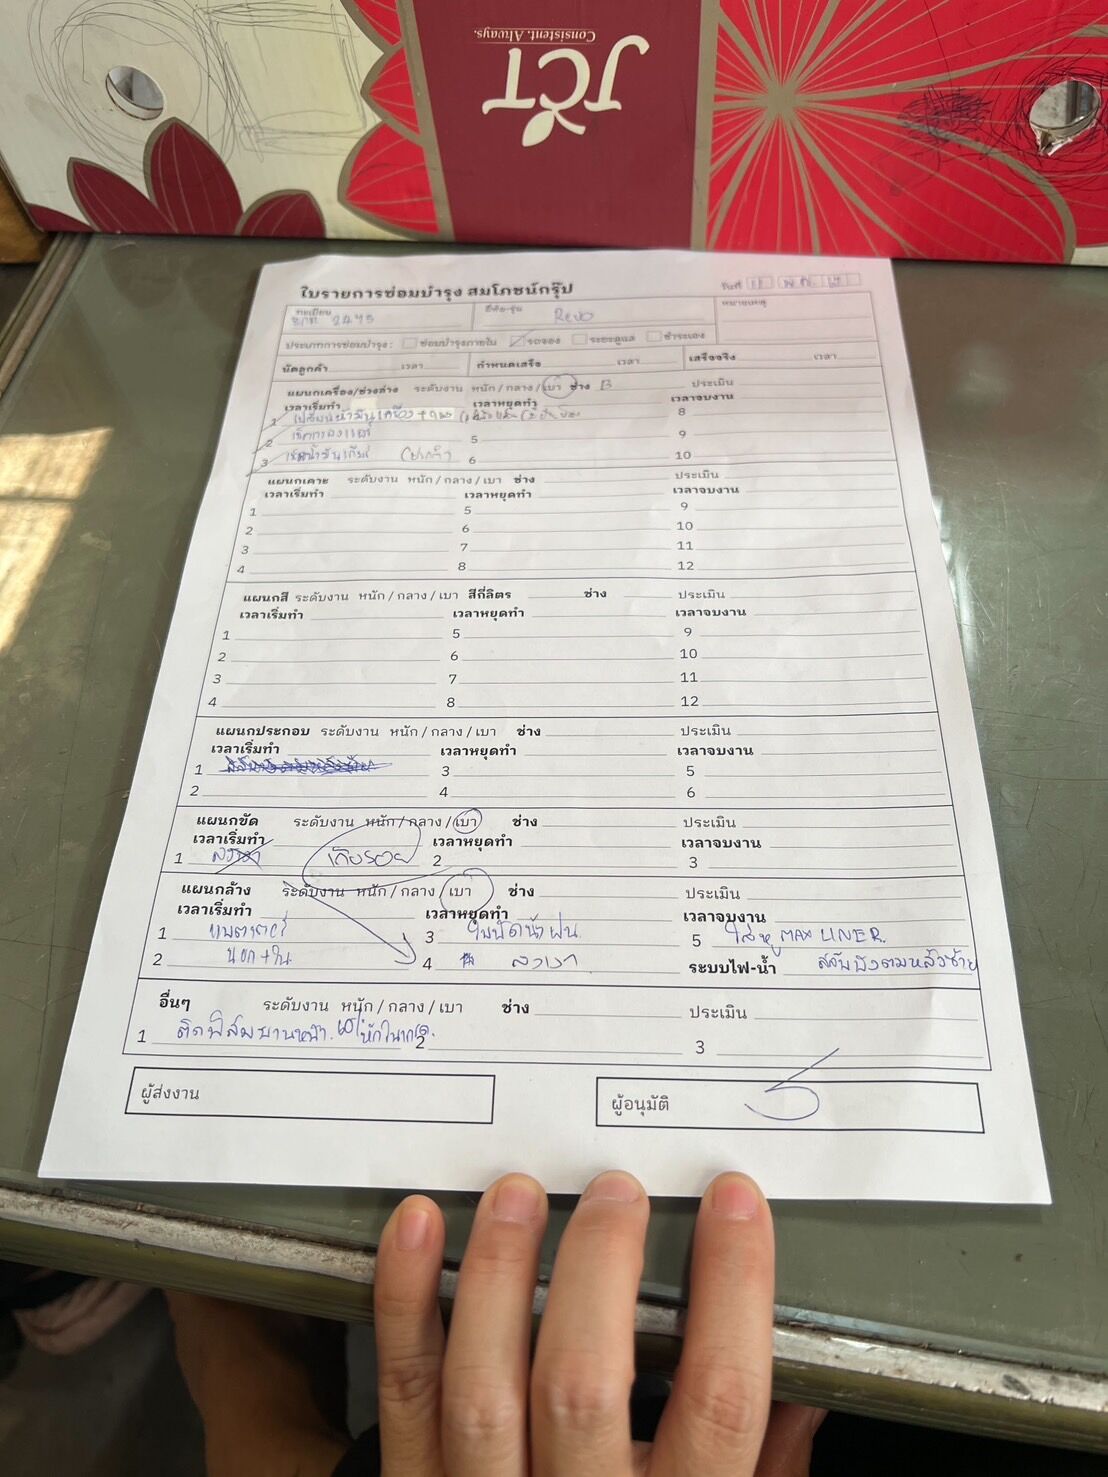 JCT
Consistent. Always.
ใบรายการซ่อมบำรุง สมโภชน์กรุ๊ป
วันที่ 11
ทะเบียน 2495 ยี่ห้อ-รุ่น Revo หมายเหตุ
ประเภทการซ่อมบำรุง : ซ่อมบำรุงภายใน รถจอง ระยะดูแล ชำระเอง
นัดลูกค้า เวลา กำหนดเสร็จ เวลา เสร็จจริง เวลา
แผนกเครื่อง/ช่วงล่าง ระดับงาน หนัก / กลาง / เบา ช่าง B ประเมิน
เวลาเริ่มทำ เวลาหยุดทำ เวลาจบงาน
1 เปลี่ยนน้ำมันเครื่อง + 8
2 5 9
3 เช็คน้ำมันเกียร์ 6 10
แผนกเคาะ ระดับงาน หนัก / กลาง / เบา ช่าง ประเมิน
เวลาเริ่มทำ เวลาหยุดทำ เวลาจบงาน
1 5 9
2 6 10
3 7 11
4 8 12
แผนกสี ระดับงาน หนัก / กลาง / เบา สีกี่ลิตร ช่าง ประเมิน
เวลาเริ่มทำ เวลาหยุดทำ เวลาจบงาน
1 5 9
2 6 10
3 7 11
4 8 12
แผนกประกอบ ระดับงาน หนัก / กลาง / เบา ช่าง ประเมิน
เวลาเริ่มทำ เวลาหยุดทำ เวลาจบงาน
1 3 5
2 4 6
แผนกขัด ระดับงาน หนัก / กลาง / เบา ช่าง ประเมิน
เวลาเริ่มทำ เวลาหยุดทำ เวลาจบงาน
1 เก็บรอย 2 3
แผนกล้าง ระดับงาน หนัก / กลาง / เบา ช่าง ประเมิน
เวลาเริ่มทำ เวลาหยุดทำ เวลาจบงาน
1 แบตเตอรี่ 3 ใบปัดน้ำฝน 5 ใส่หู MAX LINER
2 นอก + ใน 4 ลงเงา ระบบไฟ-น้ำ สลับบังตมหลังซ้าย
อื่นๆ ระดับงาน หนัก / กลาง / เบา ช่าง ประเมิน
1 ติดฟิล์มบานหน้า 2 3
ผู้ส่งงาน ผู้อนุมัติ